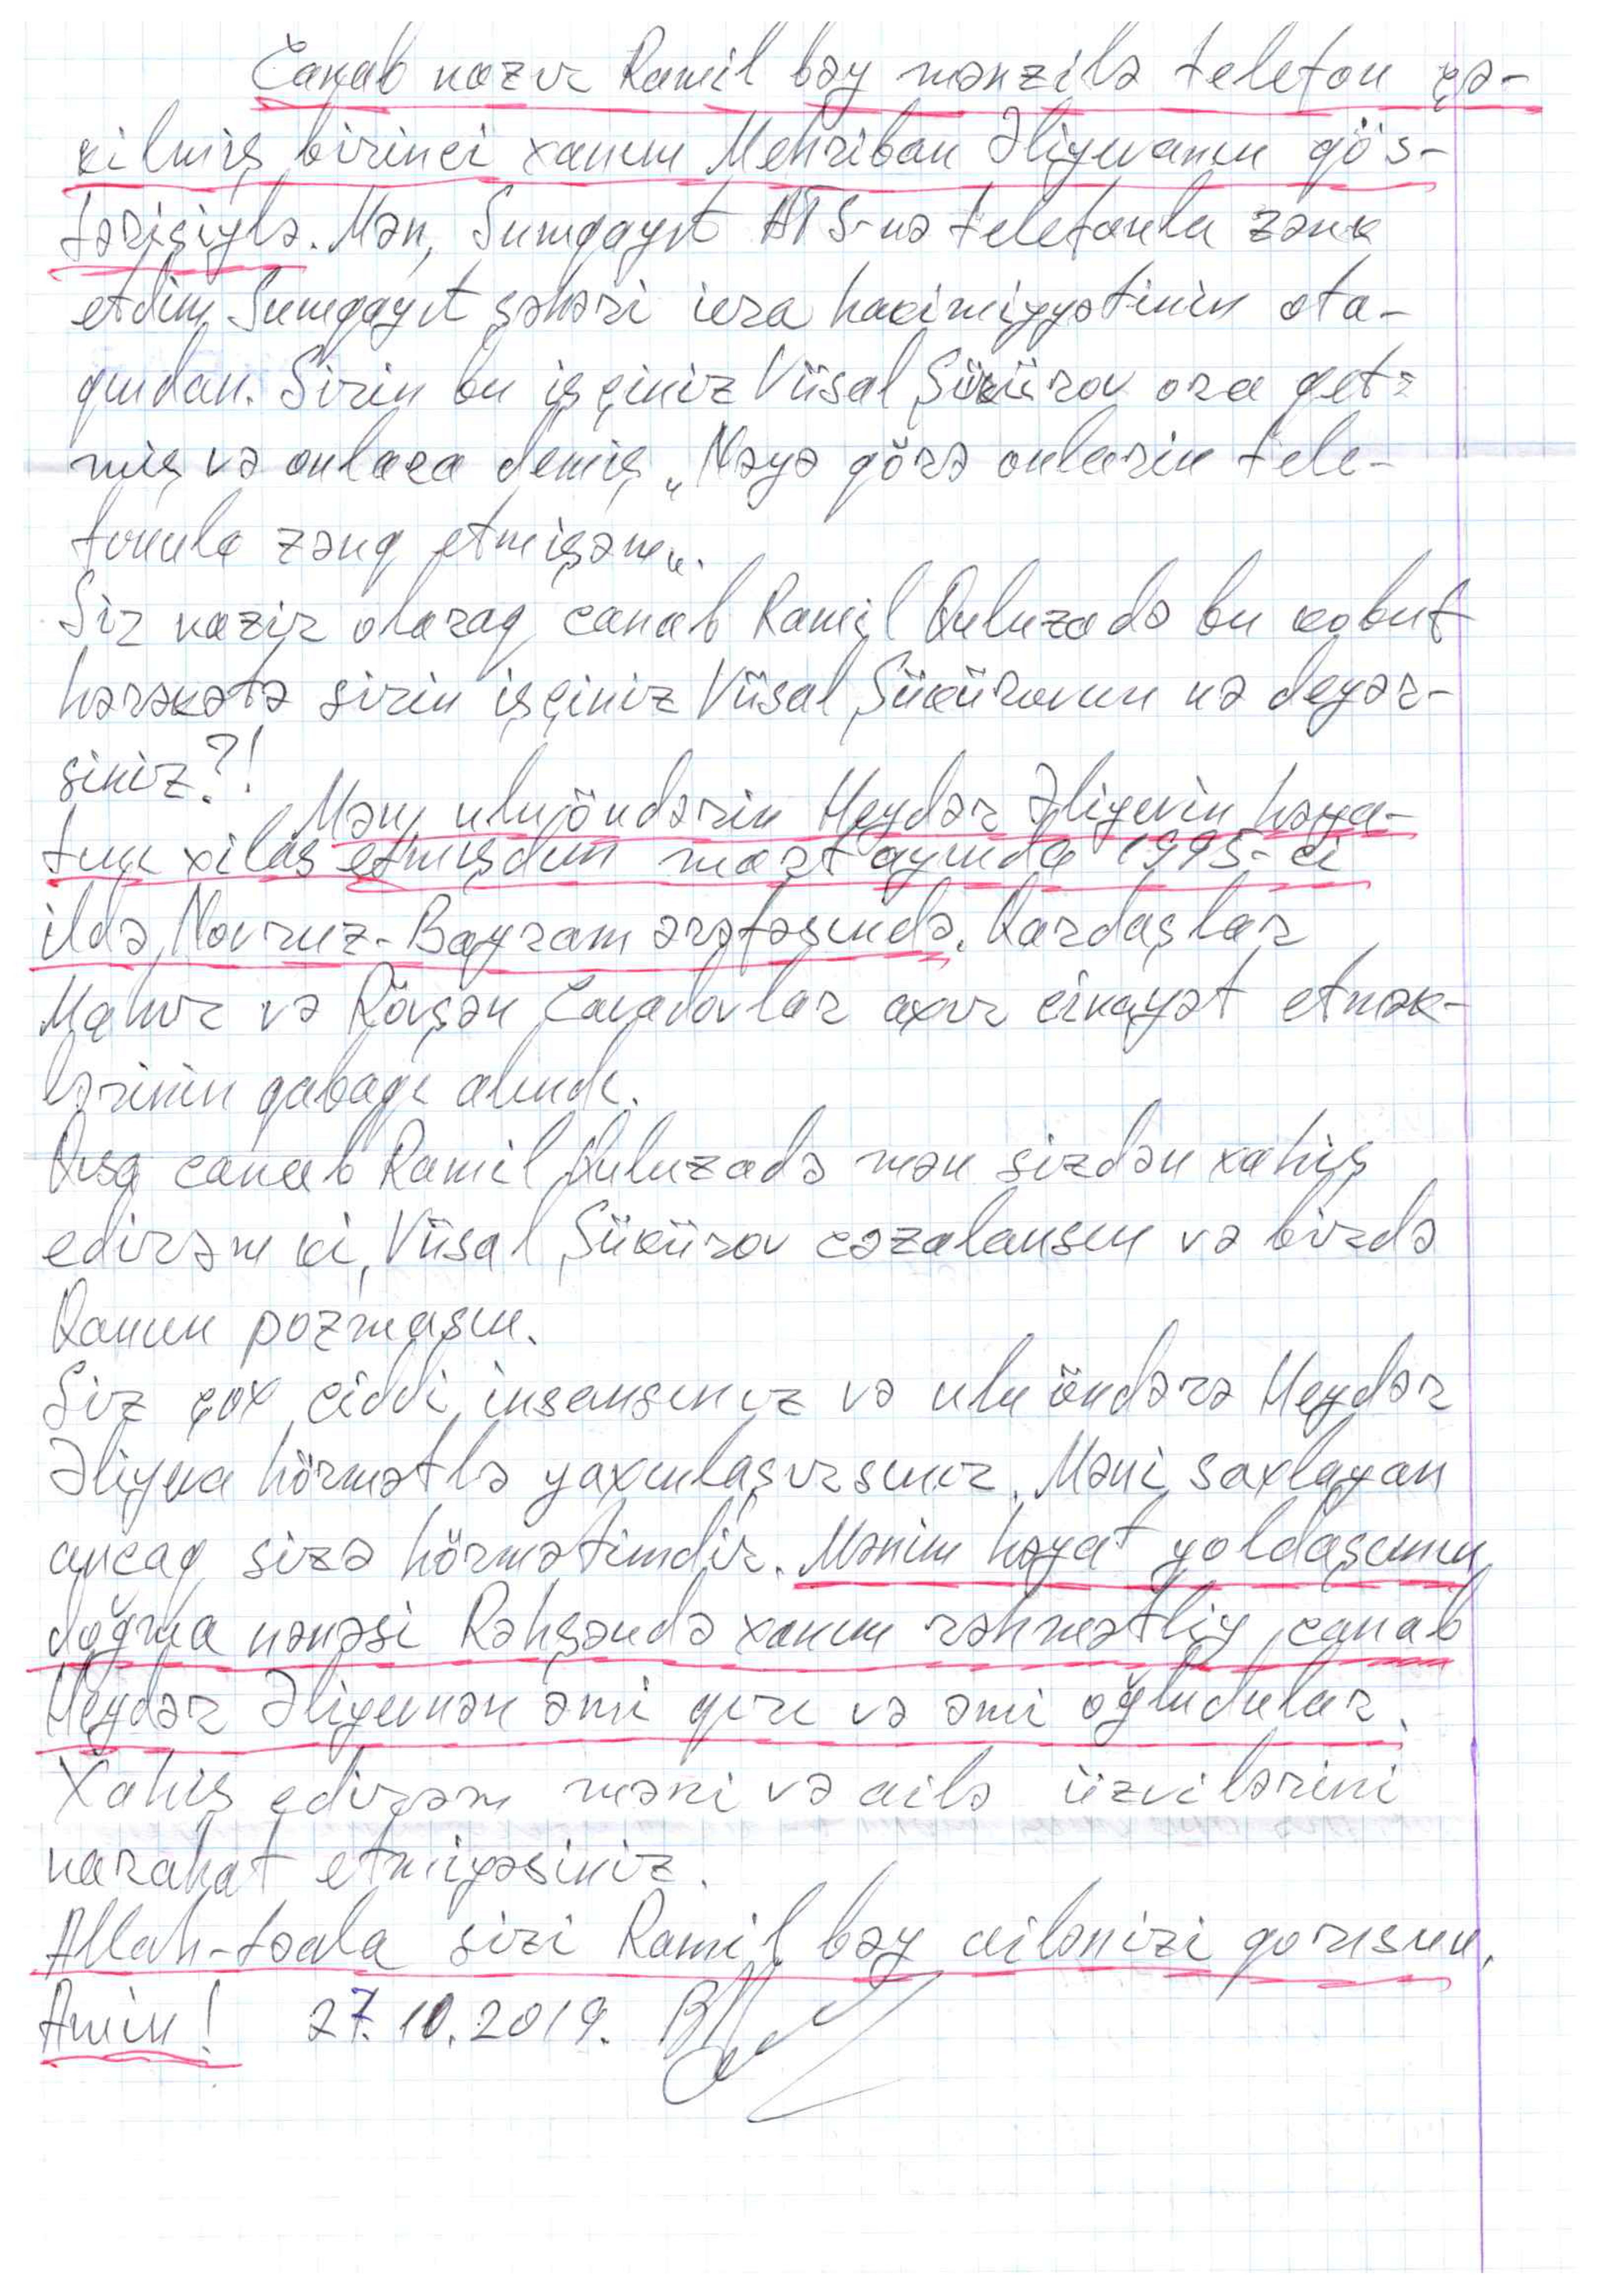 Canab nazır Ramil bəy mənzilə telefon çə-
kilmiş birinci xanım Mehriban Əliyevanın gös-
tərişiylə. Mən, Sumqayıt ATS-nə telefonla zənk
etdim Sumqayıt şəhəri icra hakimiyyətinin ota-
qından. Sizin bu işçiniz Vüsal Şükürov ora get-
miş və onlara demiş „Nəyə görə onların tele-
fonula zənq etmişəm„.
Siz nazir olaraq canab Ramil Quluzadə bu kobut
hərəkətə sizin işçiniz Vüsal Şükürovun nə deyər-
siniz?!
Mən, uluöndərin Heydər Əliyevin həya-
tını xilas etmişdim mart ayında 1995-ci
ildə, Novruz-Bayram ərəfəsində. Qardaşlar
Mahir və Rövşən Cavadovlar axır cinayət etmək-
lərinin qabagı alındı.
Qısa canab Ramil Quluzadə mən sizdən xahiş
edirəm ki, Vüsal Şükürov cəzalansın və birdə
Qanun pozmasın.
Siz çox ciddi insansınız və ulu öndərə Heydər
Əliyeva hörmətlə yaxınlaşırsınız. Məni saxlayan
ancaq sizə hörmətimdir. Mənim həyat yoldaşımın
doğma nənəsi Rəhşəndə xanım rəhmətliy, canab
Heydər Əliyevnən əmi qızı və əmi oğludular.
Xahiş edirəm məni və ailə üzvilərini
narahat etmiyəsiniz.
Allah-təala sizi Ramil bəy ailənizi qorusun.
Amin! 27.10.2019.